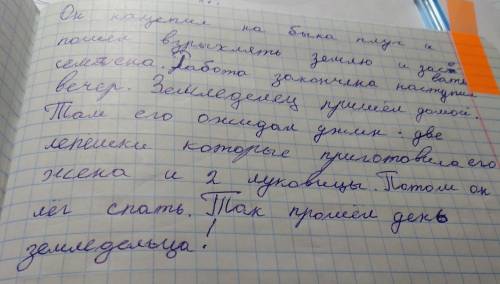 Он нацепил на быка плуг и
пошёл взрыхлять землю и засевать
семена. Работа закончена наступил
вечер. Земледелец пришёл домой.
Там его ожидал ужин - две
лепешки которые приготовила его
жена и 2 луковицы. Потом он
лёг спать. Так прошёл день
земледельца!